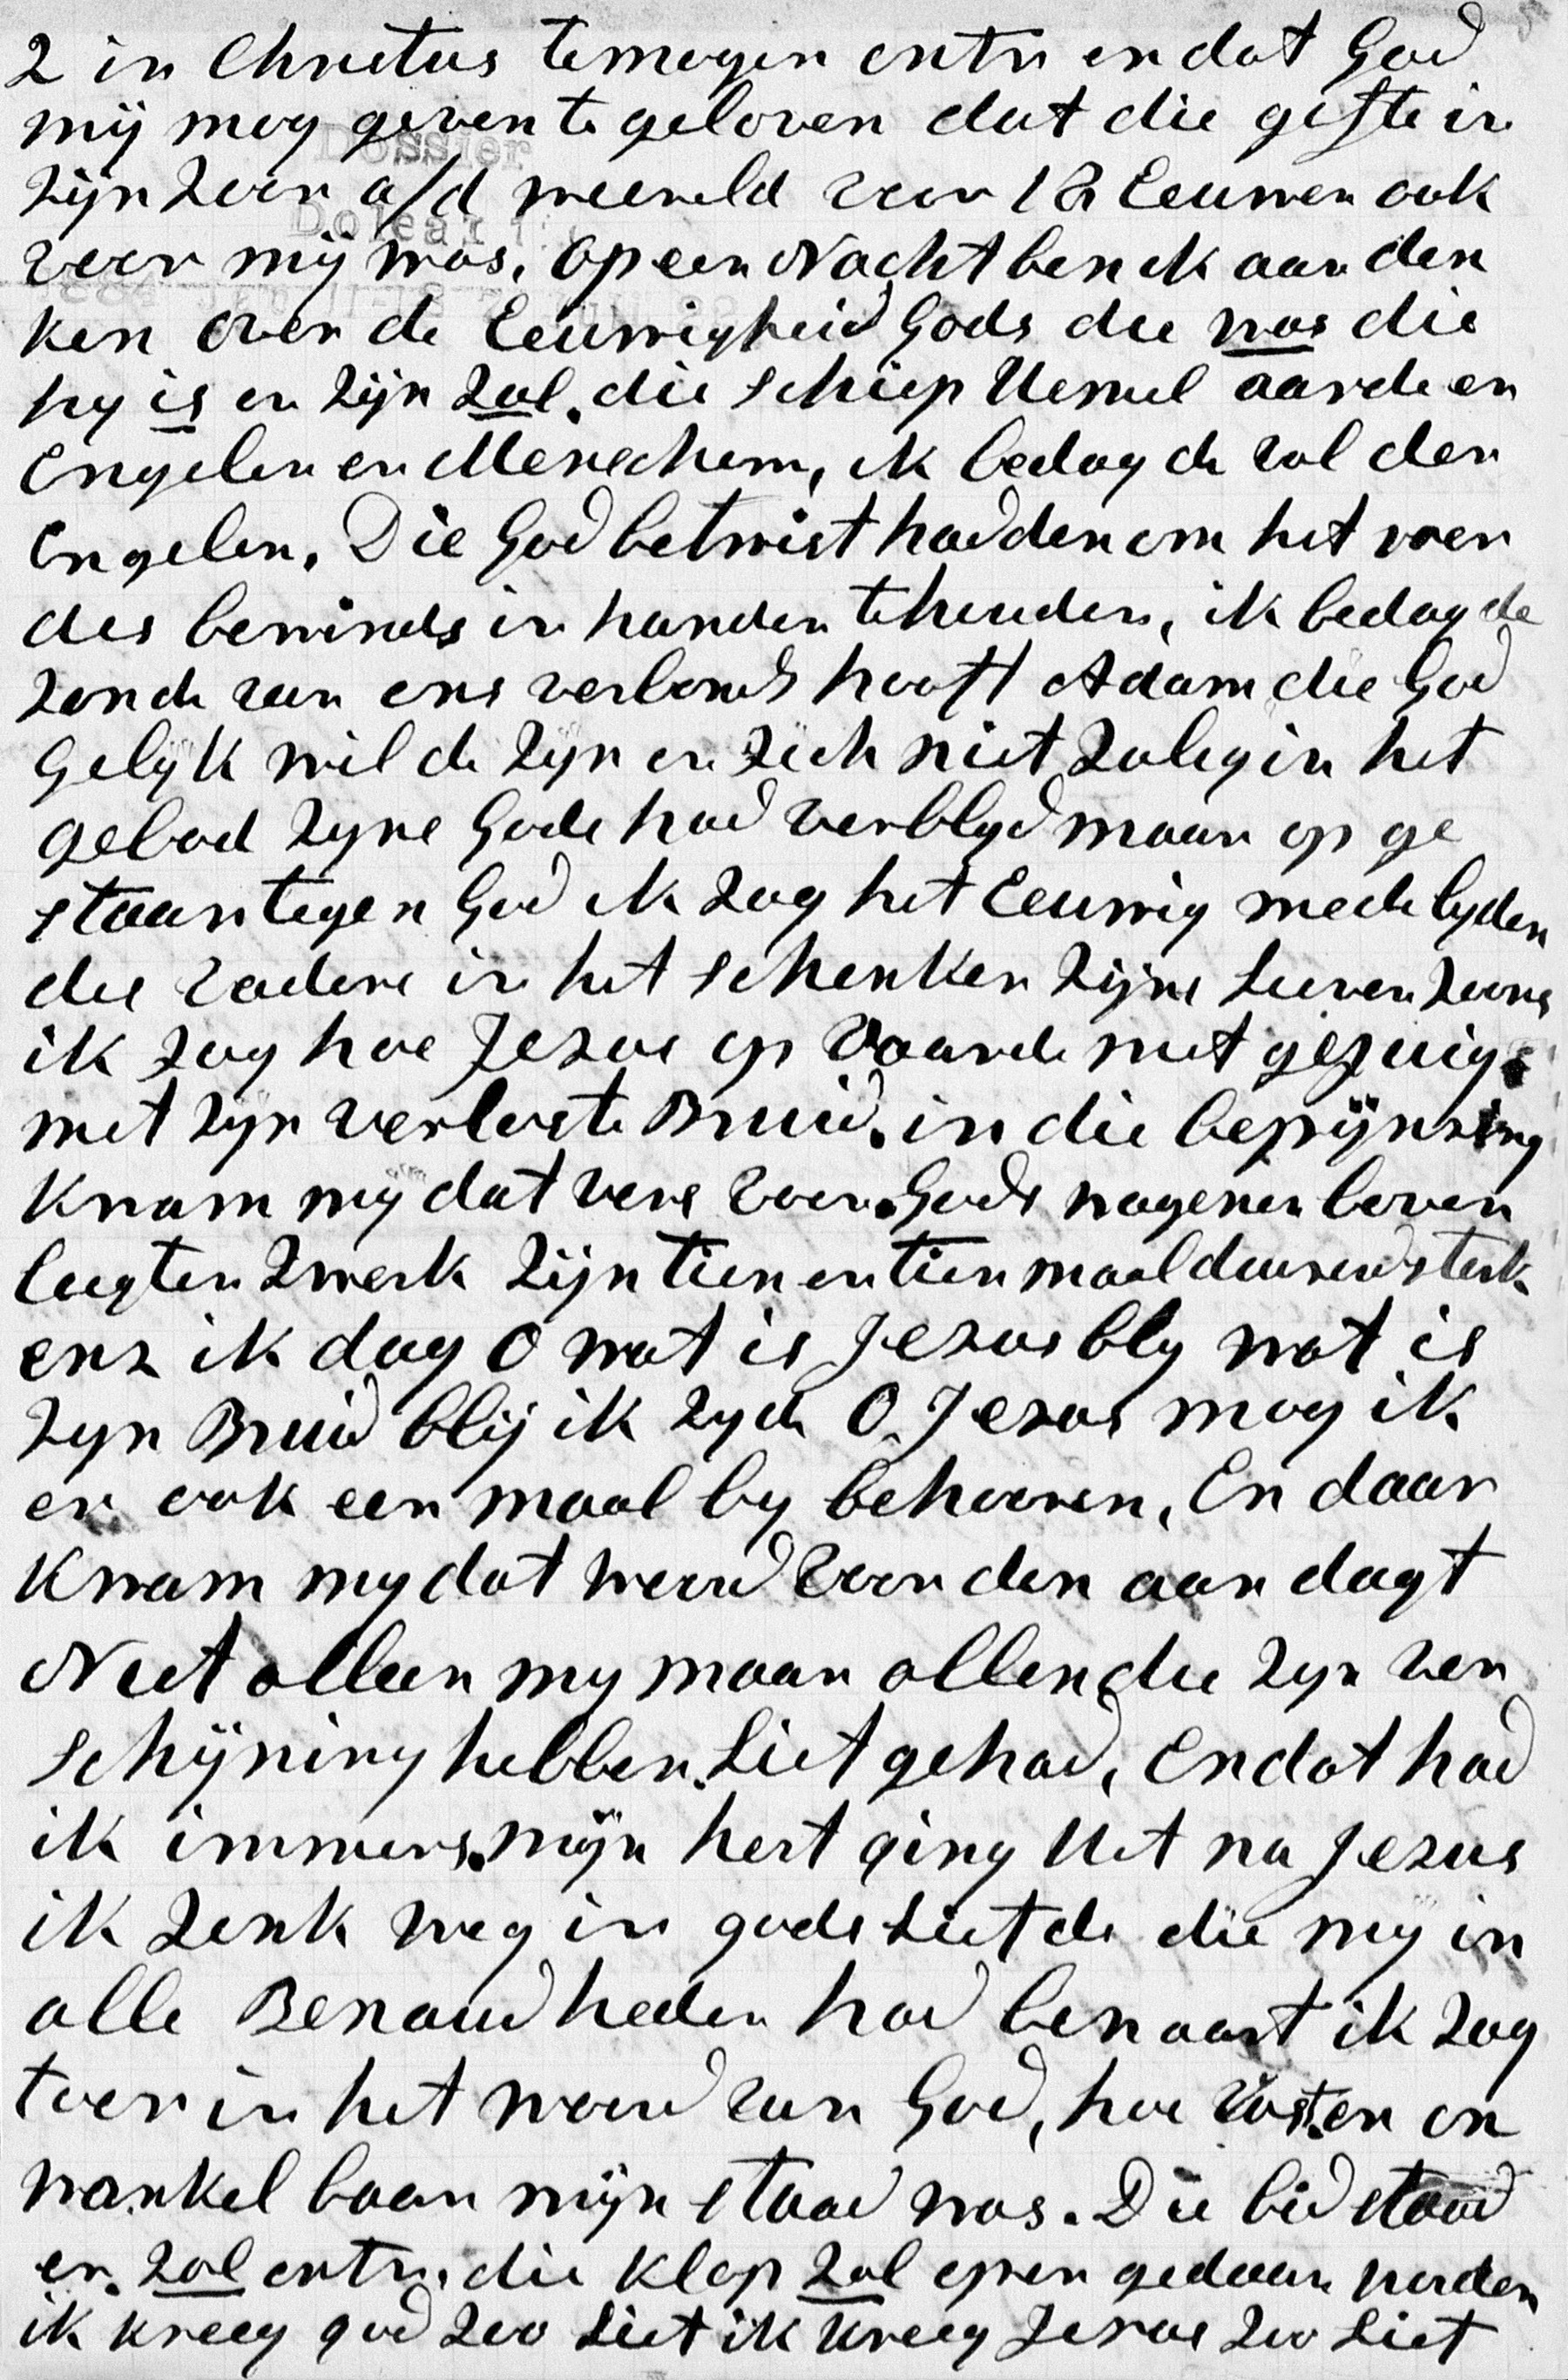 2 in Christus te mogen ontv en dat God
mij mog geven te geloven dat die gifte in
zijn Zoon a/d weereld voor 18 Eeuwen ook
voor mij was, op een Nacht ben ik aan den
ken over de Eeuwigheid Gods die was die
hy is en zijn zal. die schiep Hemel aarde en
Engelen en Menschem, ik bedag de val der
Engelen. Die God betwist hadden om het roer
des bewinds in handen te houden, ik bedag de
zonde van ons verbonds hooft Adam die God
gelijk wilde zyn en zich niet zalig in het
gebod zyns Gods had verblyd maar op ge
staan tegen God ik zag het Eeuwig medelyden
des Vaders in het schenken zijns Lieven Zoons
ik zag hoe Jezus op Aarde met gejuig
met zyn verloste Bruid. in die bepijnsing
Kwam mij dat vers voor. Gods wagenen boven
lugten zwerk zijn tien en tien maal duusend sterk
enz ik dag O wat is Jezus bly wat is
zyn Bruid blij ik zyde O. Jezus mog ik
er ook een maal by behooren, En daar
Kwam my dat woord voor den aandagt
Niet alleen my maar allen die zyn ver
schijning hebben. Lief gehad, En dat had
ik immers. mijn hert ging Uit na Jezus
ik zonk weg in gods Liefde die mij in
alle Benaudheden had bewaart ik zag
toen in het woord van God, hoe vast. en on
wankelbaar mijn staad was. Die bid staad
er. zal ontv. die klop zal open gedaan worden
ik kreeg god zoo Lief ik kreeg Jezus zoo Lief
Dossier
Doleantie